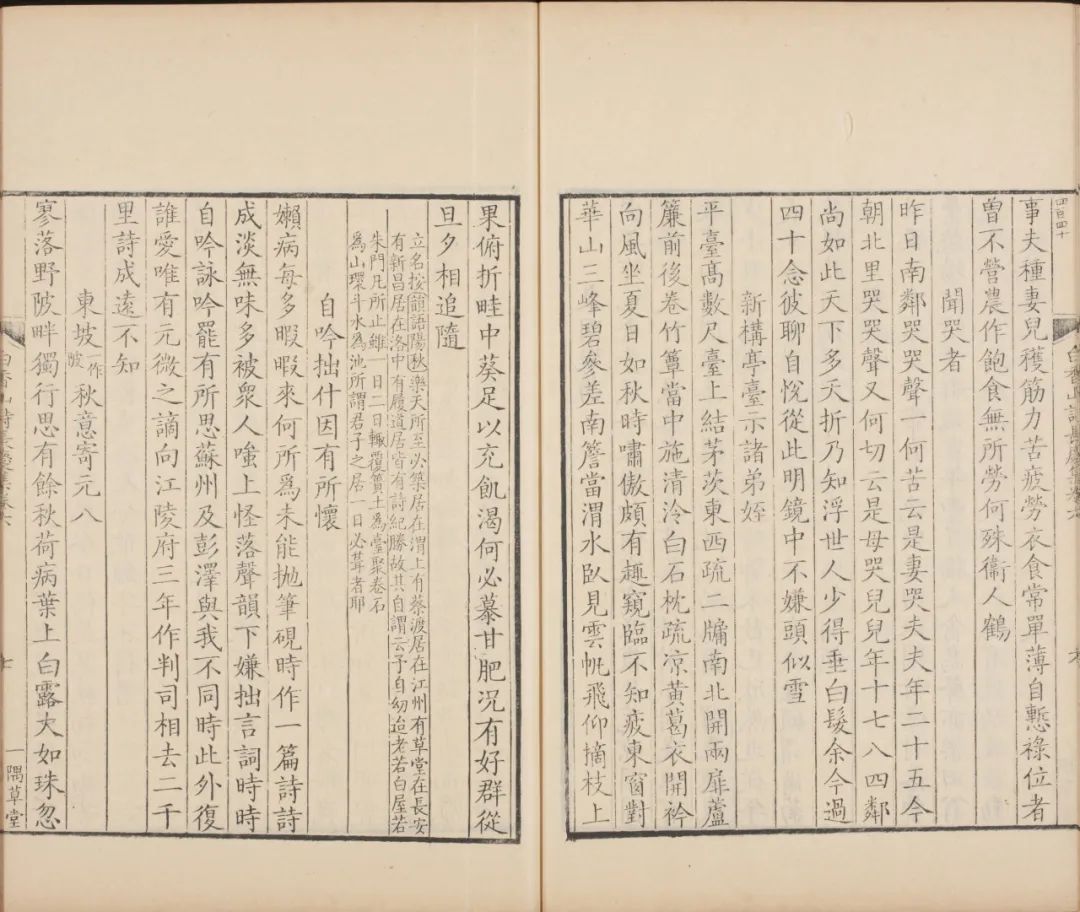 四百四十
白香山詩長慶集卷六
事夫種妻兒穫筋力苦疲勞衣食常單薄自慙祿位者
曾不營農作飽食無所勞何殊衞人鶴
聞哭者
昨日南鄰哭哭聲一何苦云是妻哭夫夫年二十五今
朝北里哭哭聲又何切云是母哭兒兒年十七八四鄰
尚如此天下多夭折乃知浮世人少得垂白髮余今過
四十念彼聊自悅從此明鏡中不嫌頭似雪
新構亭臺示諸弟姪
平臺高數尺臺上結茅茨東西疏二牖南北開兩扉蘆
簾前後卷竹簟當中施清泠白石枕疏凉黃葛衣開衿
向風坐夏日如秋時嘯傲頗有趣窺臨不知疲東窗對
華山三峰碧參差南簷當渭水臥見雲帆飛仰摘枝上
果俯折畦中葵足以充飢渴何必慕甘肥況有好群從
旦夕相追隨
立名按韻語陽秋樂天所至必築居在渭上有蔡渡居在江州有草堂在長安
有新昌居在洛中有履道居皆有詩紀勝故其自謂云予自幼迨老若白屋若
朱門凡所止雖一日二日輙覆簣土爲臺聚卷石
爲山環斗水爲池所謂君子之居一日必葺者耶
自吟拙什因有所懷
嬾病每多暇暇來何所爲未能抛筆硯時作一篇詩詩
成淡無味多被衆人嗤上怪落聲韻下嫌拙言詞時時
自吟詠吟罷有所思蘇州及彭澤與我不同時此外復
誰愛唯有元微之謫向江陵府三年作判司相去二千
里詩成遠不知
東坡一作陂秋意寄元八
寥落野陂畔獨行思有餘秋荷病葉上白露大如珠忽
白香山詩長慶集卷六
七
一隅草堂